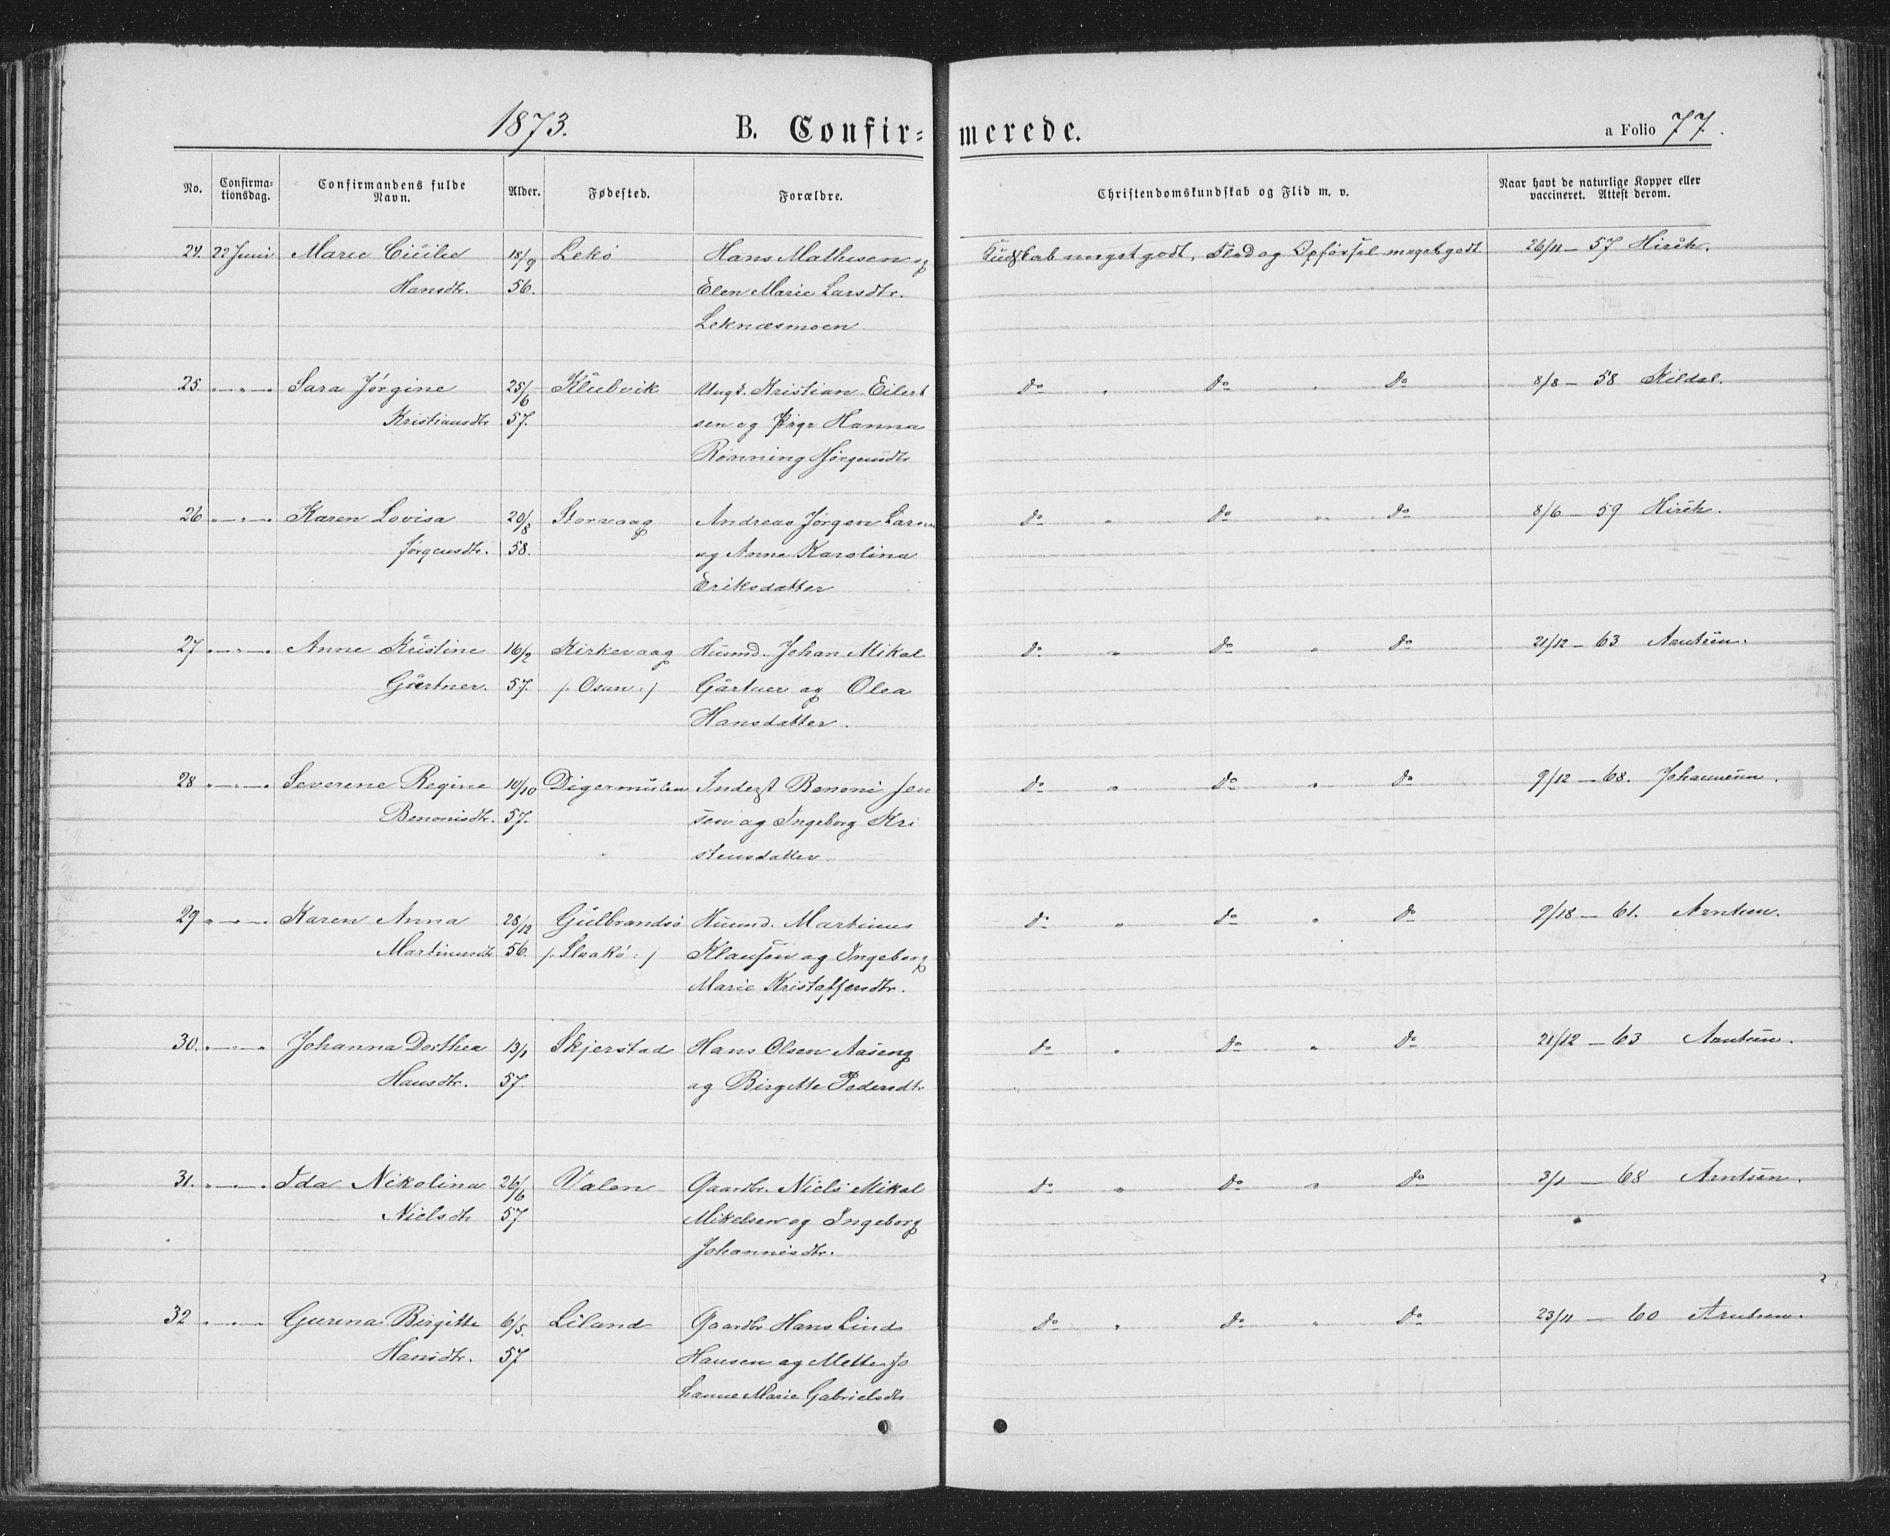 1873. B. Confir= merede. a Folio 77.
No. Confirma= tionsdag. Confirmandens fulde Navn. Alder. Fødested. Forældre. Christendomskundskab og Flid m. v. Naar havt de naturlige Kopper eller vaccineret. Attest derom.
24. 22 Juni Marie 18/9 Lekø Hans Mathisen og Kundskab meget godt, Flid og Opførsel meget godt 26/11 – 57
Hansdtr. 56. Elen Marie Larsdtr.
Leknæsmoen
25. " — " — " Sara Jørgine 25/6 Klubvik Ungk. Kristian Eilert do " do " do 8/8 – 58 Kildal.
Kristiansdtr 57. sen og Pige Hanna
Rønning Jørgensdtr
26 " — " — " Karen Lovisa 20/8 Storvaag Andreas Jørgen Larsen do " do " do 8/6 – 59
Jørgensdtr. 58. og Anne Karolina
Eriksdatter
27 " — " — " Anne Kristine 16/2 Kirkevaag Huusmd. Johan Mikal do " do " do 21/12 – 63 Arntsen.
Gärtner. 57. /: Osan :/ Gärtner og Olea
Hansdatter.
28 " — " — " Severene Regine 10/10 Digermulen Inderst Benoni Jen do " do " do 9/12 – 68. Johannesen.
Benonisdtr. 57. sen og Ingeborg Kri
stensdatter
29 " — " — " Karen Anna 28/12 Gulbrandsö Huusmd. Martinus do " do " do 9/18 – 61. Arntsen.
Martinusdtr 56. Klausen og Ingeborg
Marie Kristoffersdtr.
30. " — " — " Johanna Dorthea 13/1 Skjerstad Hans Olsen Aaseng do " do " do 21/12 – 63 Arntsen.
Hansdtr. 57. og Birgitte Pedersdtr
31. " — " — " Ida Nikolina 26/6 Valen Gaardbr. Niels Mikal do " do " do 3/1 – 68 Arntsen.
Nielsdtr 57 Mikelsen og Ingeborg
Johannisdtr.
32 " — " — " Gurina Birgitte 6/5. Liland Gaardbr Hans Lind do " do " do 23/11 – 60 Arntsen.
Hansdtr. 57 Hansen og Mette Jo
hanne Marie Gabrielsdtr